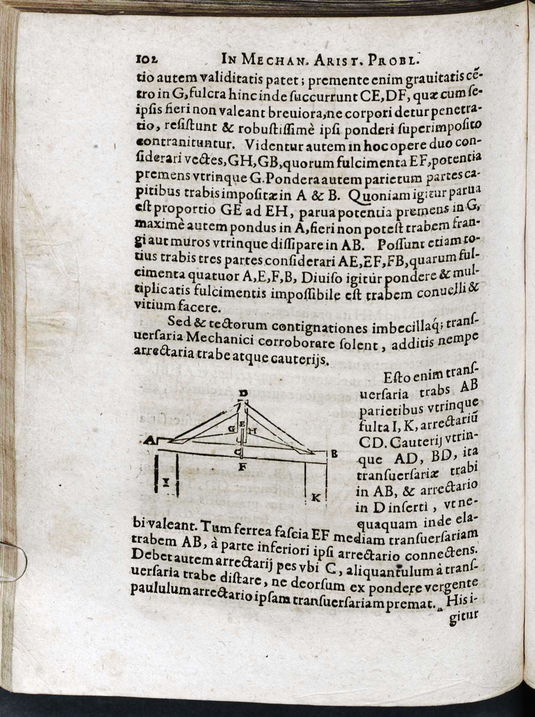 102 IN MECHAN. ARIST. PROBL.
tio autem validitatis patet; premente enim grauitatis cē-
tro in G, fulcra hinc inde succurrunt CE, DF, quæ cum se-
ipsis fieri non valeant breuiora, ne corpori detur penetra-
tio, resistunt & robustissimè ipsi ponderi superimposito
contranituntur. Videntur autem in hoc opere duo con-
siderari vectes, GH, GB, quorum fulcimenta EF, potentia
premens vtrinque G. Pondera autem parietum partes ca-
pitibus trabis impositæ in A & B. Quoniam igitur parua
est proportio GE ad EH, parua potentia premens in G,
maximè autem pondus in A, fieri non potest trabem fran-
gi aut muros vtrinque dissipare in AB. Possunt etiam to-
tius trabis tres partes considerari AE, EF, FB, quarum ful-
cimenta quatuor A, E, F, B, Diuiso igitur pondere & mul-
tiplicatis fulcimentis impossibile est trabem conuelli &
vitium facere.
Sed & tectorum contignationes imbecillaq́; trans-
uersaria Mechanici corroborare solent, additis nempe
arrectaria trabe atque cauterijs.
Esto enim trans-
uersaria trabs AB
parietibus vtrinque
fulta I, K, arrectariū
CD. Cauterij vtrin-
que AD, BD, ita
transuersariæ trabi
in AB, & arrectario
in D inserti, vt ne-
quaquam inde ela-
D
G E H
A B
C
F
I K
bi valeant. Tum ferrea fascia EF mediam transuersariam
trabem AB, à parte inferiori ipsi arrectario connectens.
Debet autem arrectarij pes vbi C, aliquantulum à trans-
uersaria trabe distare, ne deorsum ex pondere vergente
paululum arrectario ipsam transuersariam premat. His i-
gitur